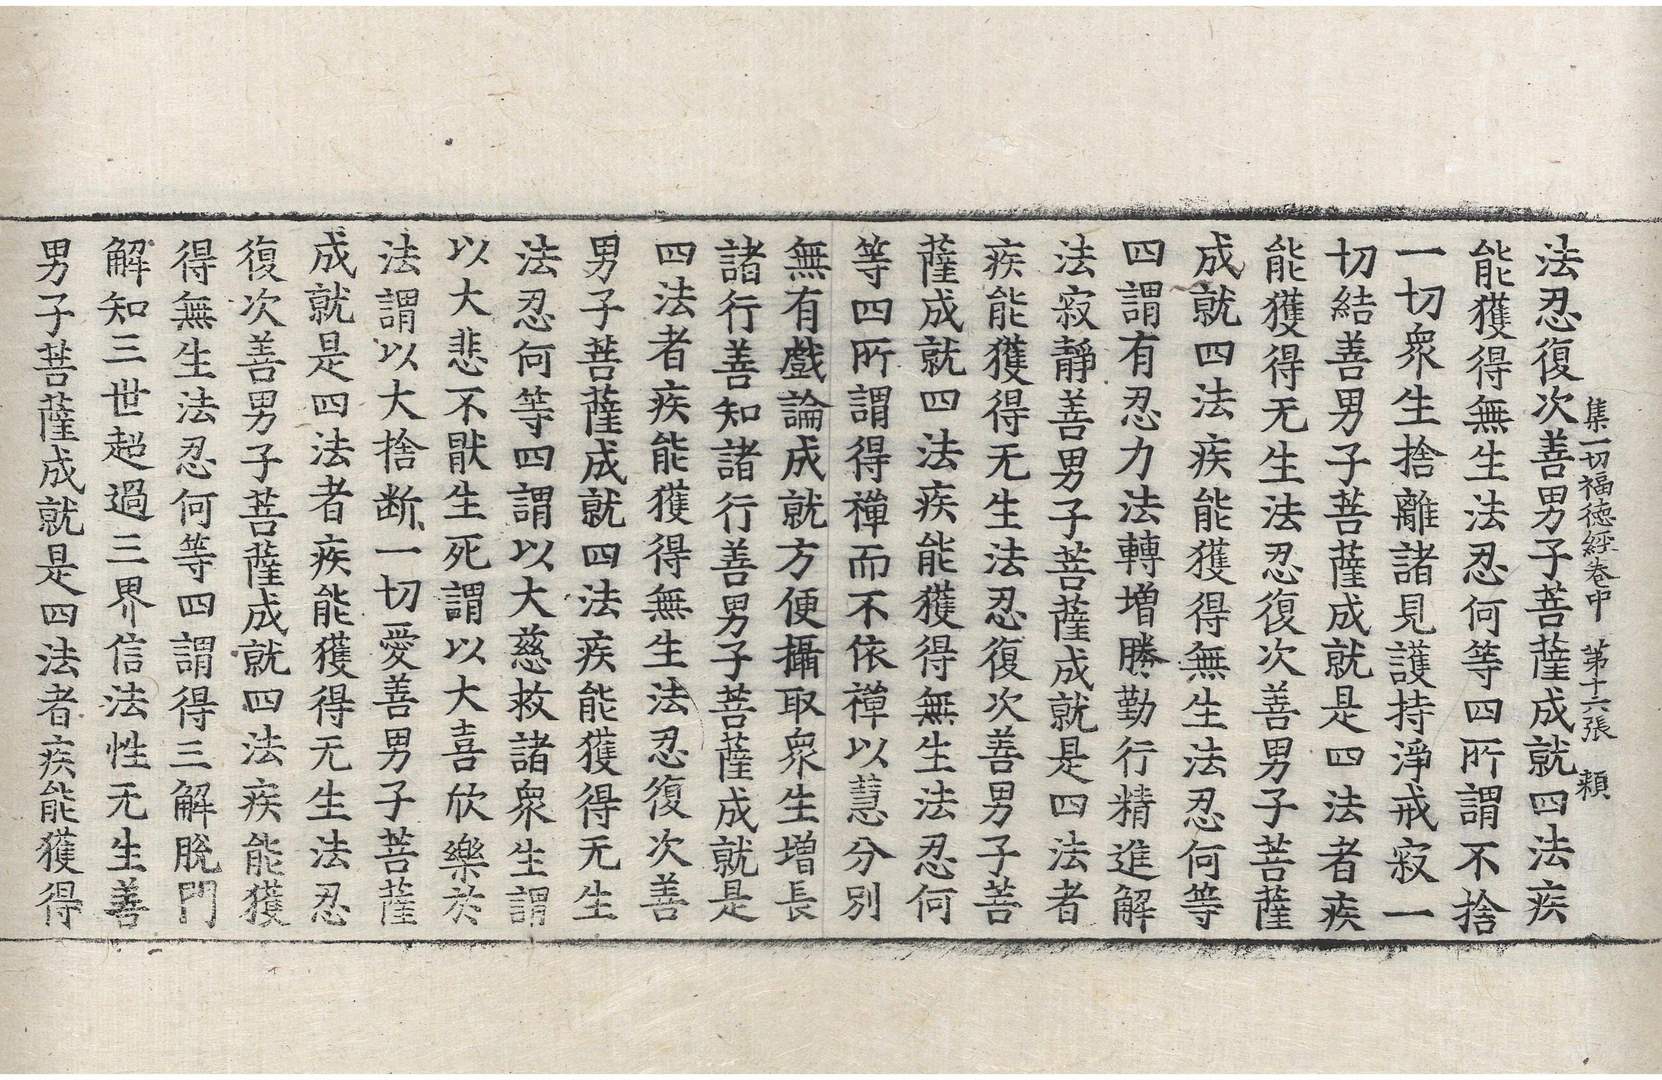 集一切福徳經卷中 第十六張 頼
法忍復次善男子菩薩成就四法疾
能獲得無生法忍何等四所謂不捨
一切衆生捨離諸見護持淨戒寂一
切結善男子菩薩成就是四法者疾
能獲得无生法忍復次善男子菩薩
成就四法疾能獲得無生法忍何等
四謂有忍力法轉増勝勤行精進解
法寂靜善男子菩薩成就是四法者
疾能獲得无生法忍復次善男子菩
薩成就四法疾能獲得無生法忍何
等四所謂得禪而不依禪以慧分别
無有戲論成就方便攝取衆生増長
諸行善知諸行善男子菩薩成就是
四法者疾能獲得無生法忍復次善
男子菩薩成就四法疾能獲得无生
法忍何等四謂以大慈救諸衆生謂
以大悲不猒生死謂以大喜欣樂於
法謂以大捨断一切愛善男子菩薩
成就是四法者疾能獲得无生法忍
復次善男子菩薩成就四法疾能獲
得無生法忍何等四謂得三解脫門
解知三世超過三界信法性无生善
男子菩薩成就是四法者疾能獲得